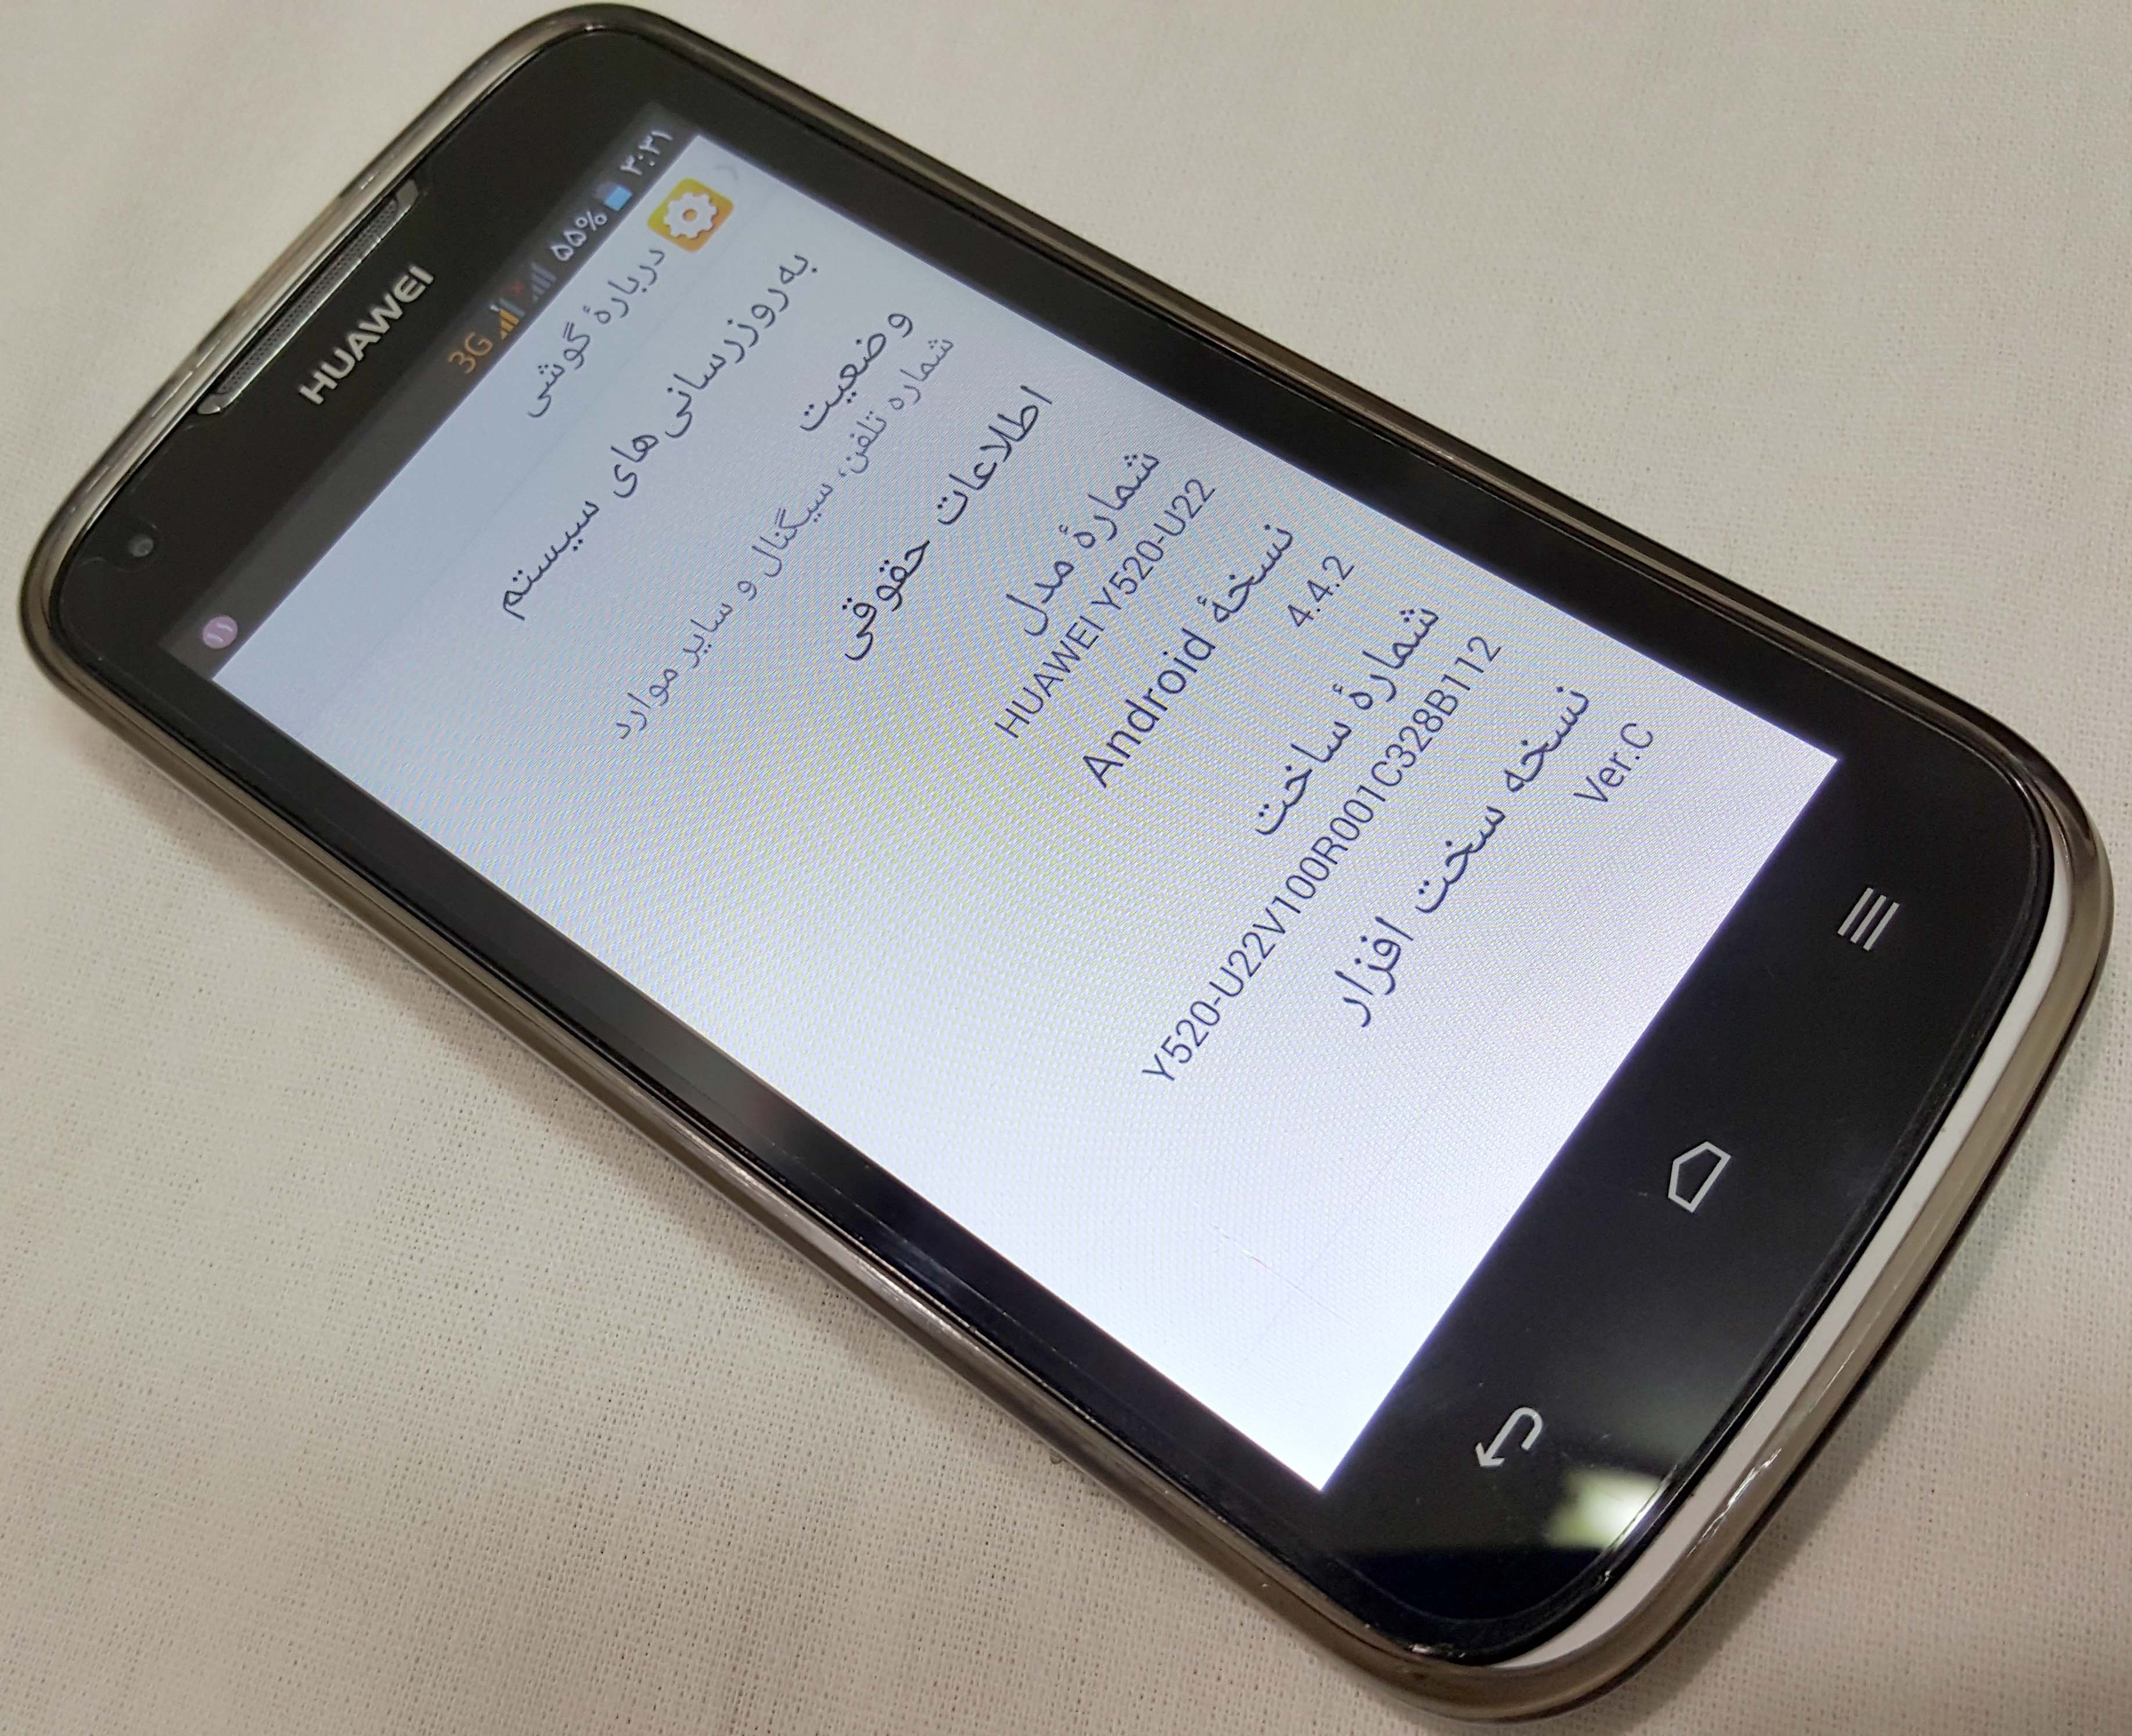 HUAWEI
3G ۵۵% ۳:۳۱
۱۱
دربارهٔ گوشی
به‌روزرسانی‌های سیستم
وضعیت
شماره تلفن، سیگنال و سایر موارد
اطلاعات حقوقی
شمارهٔ مدل
HUAWEI Y520-U22
نسخهٔ Android
4.4.2
شمارهٔ ساخت
Y520-U22V100R001C328B112
نسخه سخت افزار
Ver.C